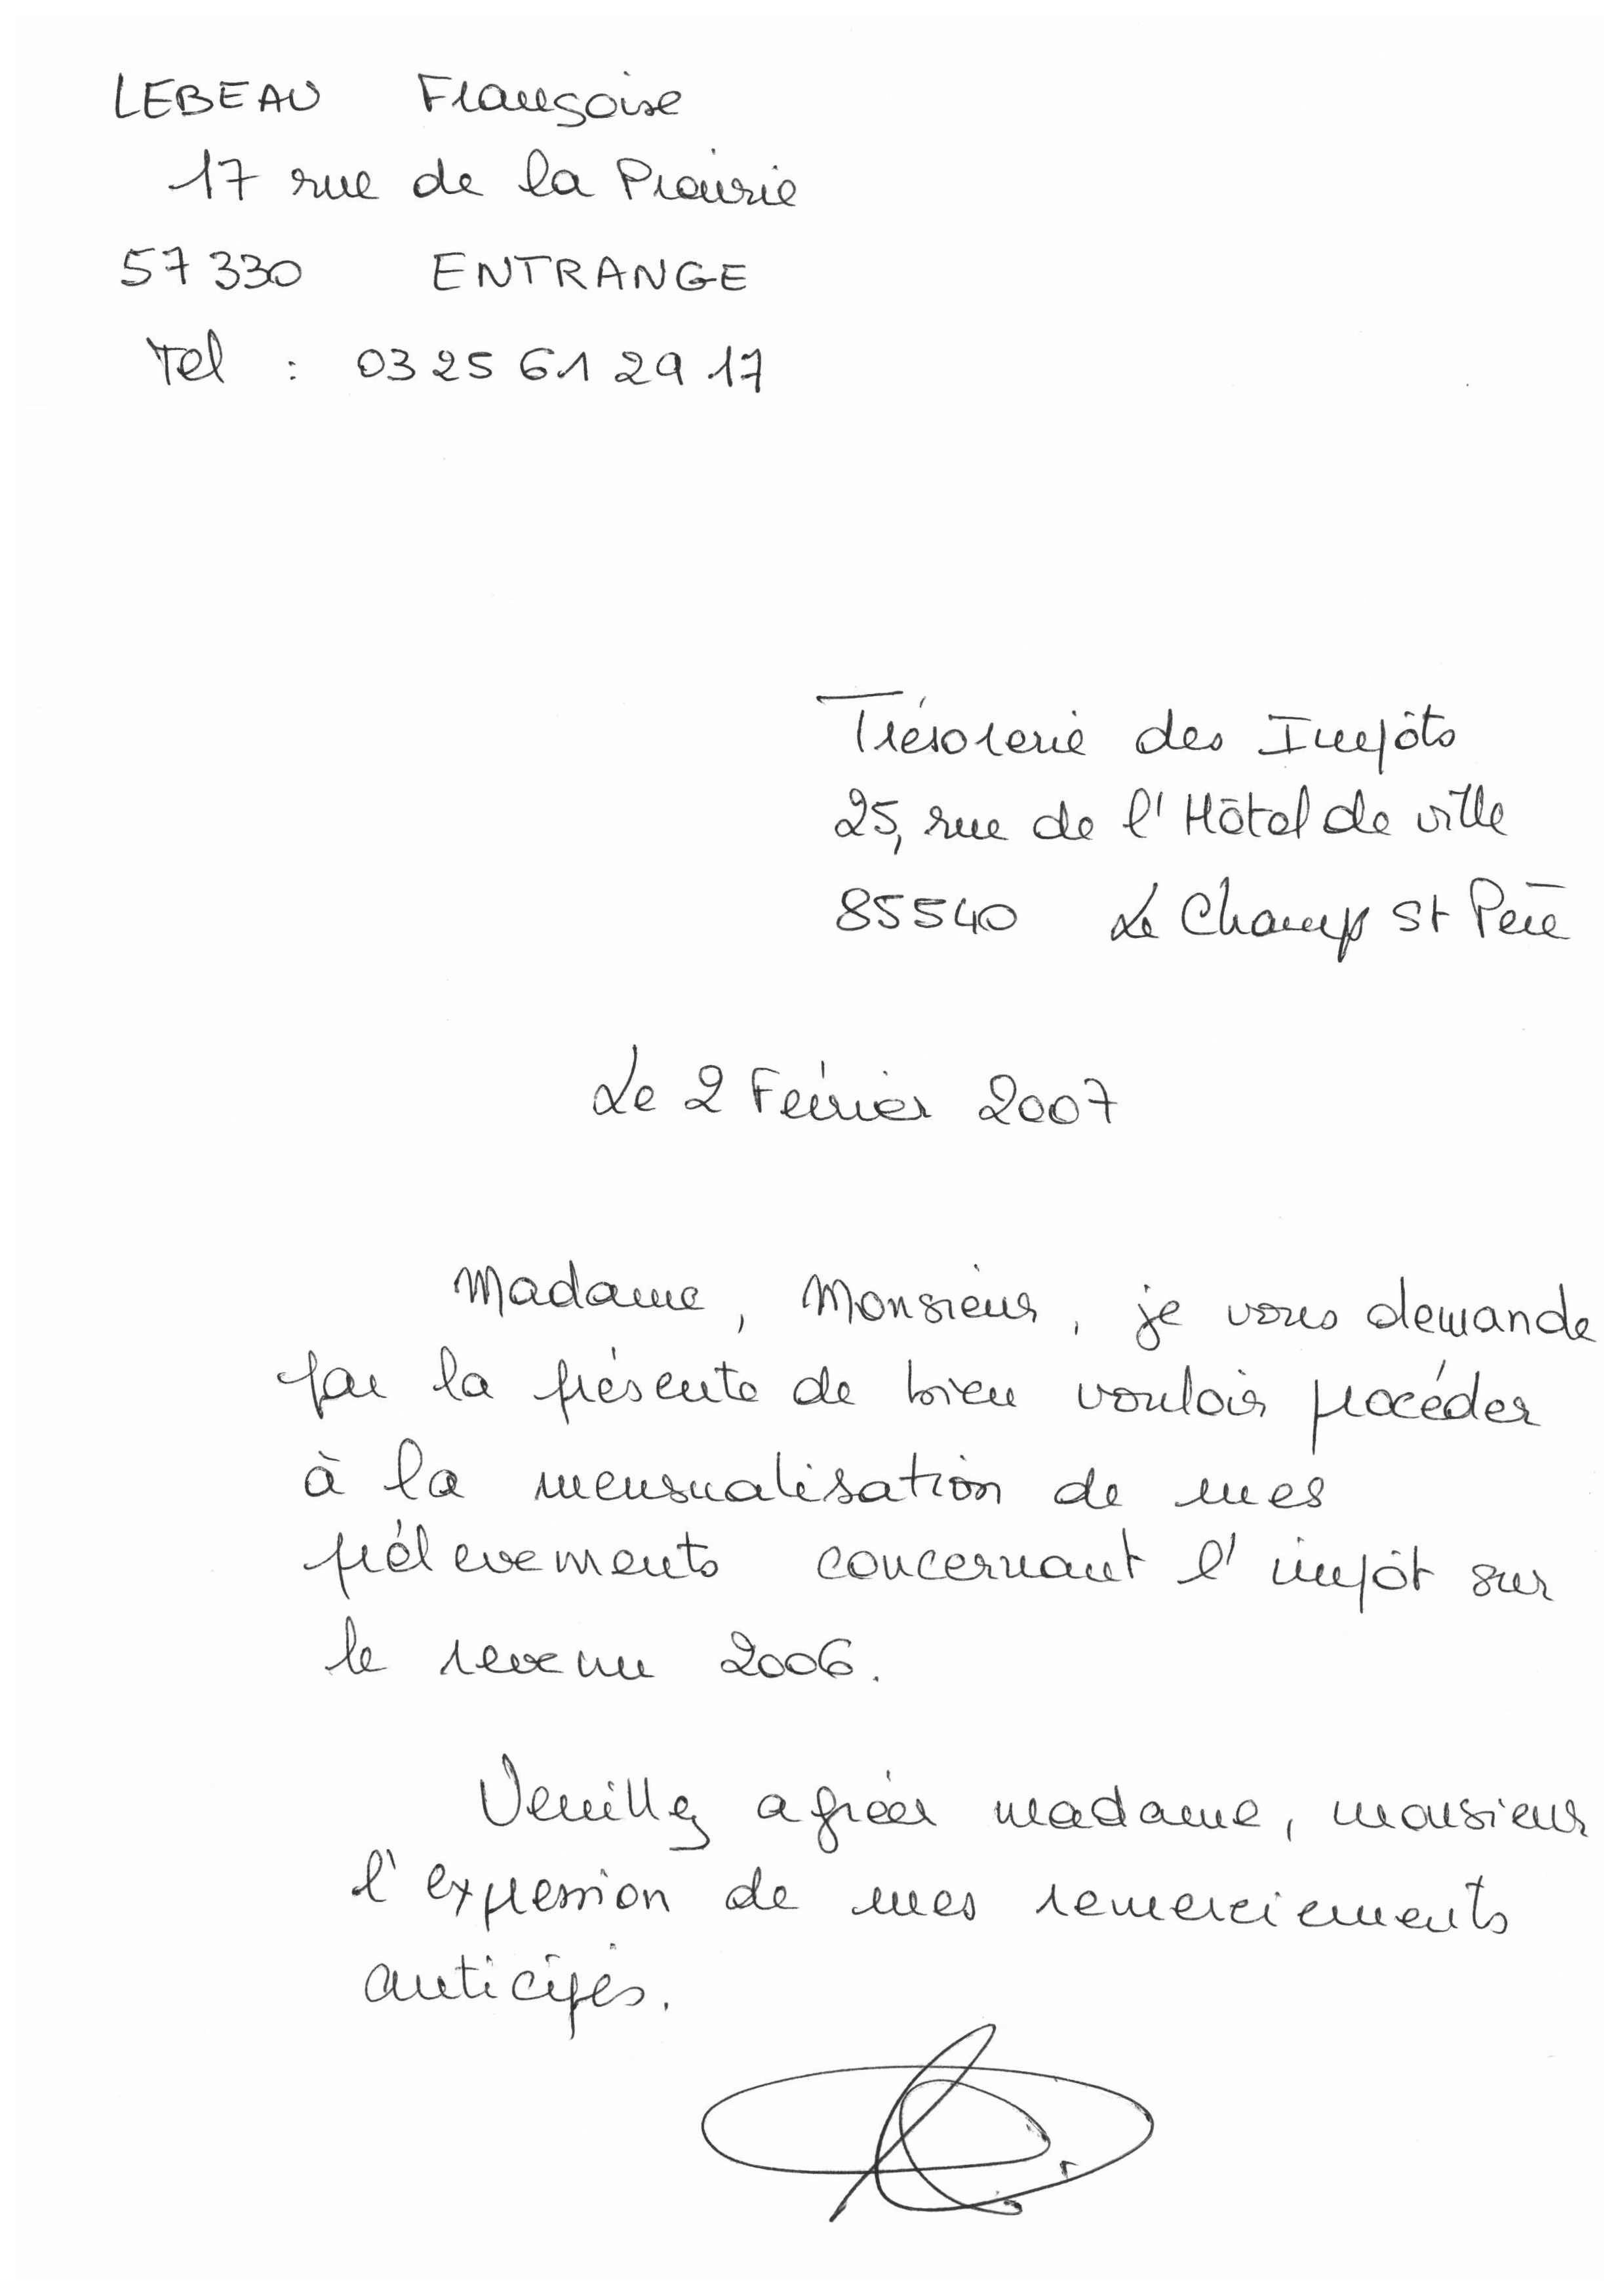 LEBEAU Françoise
17 rue de la Prairie
57330 ENTRANGE
Tel : 03 25 61 29 17
Trésorerie des Impôts
25, rue de l'Hôtel de ville
85540 Le Champ St Père
Le 2 Février 2007
Madame, Monsieur, je vous demande
par la présente de bien vouloir procéder
à la mensualisation de mes
prélevements concernant l'impôt sur
le revenu 2006.
Veuillez agréer madame, monsieur
l'expression de mes remerciements
anticipés.